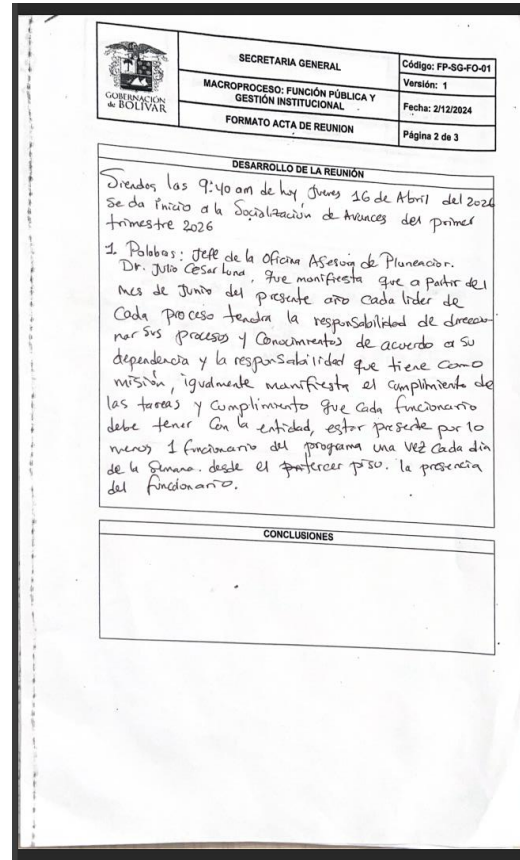 GOBERNACIÓN
de BOLÍVAR
SECRETARIA GENERAL
MACROPROCESO: FUNCIÓN PÚBLICA Y
GESTIÓN INSTITUCIONAL
FORMATO ACTA DE REUNION
Código: FP-SG-FO-01
Versión: 1
Fecha: 2/12/2024
Página 2 de 3
DESARROLLO DE LA REUNIÓN
Siendos las 9:40 am de hoy, Jueves 16 de Abril del 2026
se da inicio a la Socialización de Avances del primer
trimestre 2026
1. Palabras: Jefe de la Oficina Asesora de Planeacion.
Dr. Julio Cesar Luna, que manifiesta que a partir del
mes de Junio del presente año cada lider de
Cada proceso tendra la responsabilidad de direccio
nar sus procesos y Conocimientos de acuerdo a su
dependencia y la responsabilidad que tiene como
misión, igualmente manifiesta el cumplimiento de
las tareas y cumplimiento que cada funcionario
debe tener con la entidad, estar presente por lo
menos 1 funcionario del programa una vez cada dia
de la semana. desde el tercer piso. la presencia
del funcionario.
CONCLUSIONES